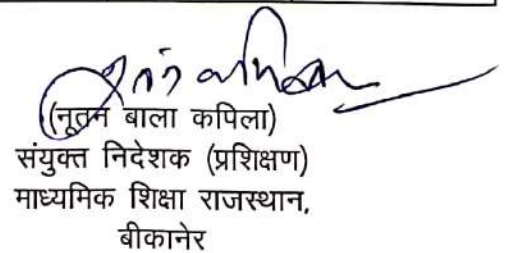 (नूतन बाला कपिला)
संयुक्त निदेशक (प्रशिक्षण)
माध्यमिक शिक्षा राजस्थान,
बीकानेर